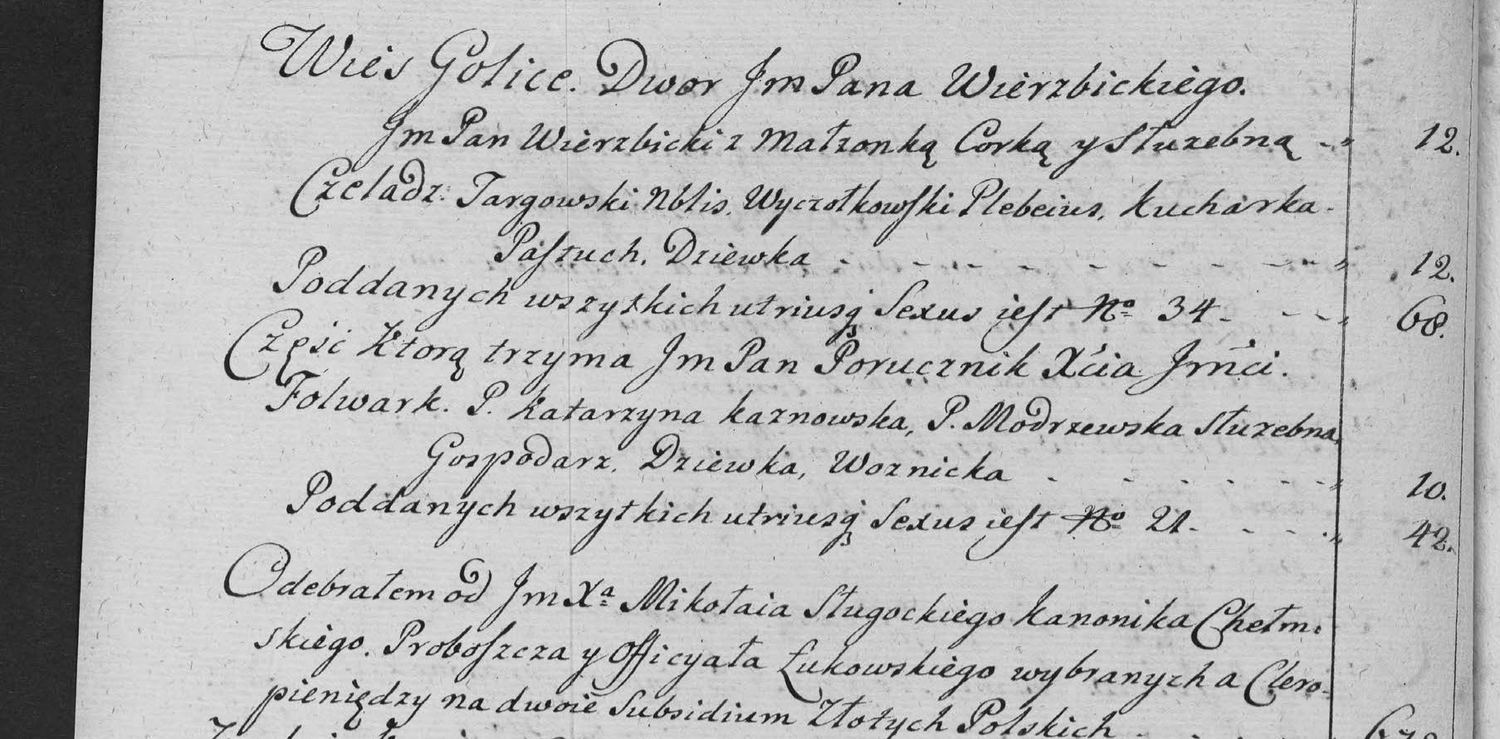 Wieś Golice. Dwor Jm Pana Wierzbickiego.
Jm Pan Wierzbicki z Małzonką Corką y Słuzebną - „ 12.
Czeladz: Targowski Nblis, Wyczołkowski Plebeius, Kucharka -
Pastuch, Dziewka - - - - - - - - - „ 12.
Poddanych wszytkich utriusq Sexus iest No 34 - - - - „ 68.
Część Ktorą trzyma Jm Pan Porucznik Xcia Jmci.
Folwark. P. Katarzyna Kaznowska, P. Modrzewska Słuzebna,
Gospodarz, Dziewka, Woznicka - - - - - „ 10.
Poddanych wszytkich utriusq Sexus iest No 21 - - - - „ 42.
Odebrałem od Jm Xa Mikołaia Sługockiego Kanonika Chełm.
skiego. Proboszcza y Officyała Łukowskiego wybranych a Clero-
pieniędzy na dwoie Subsidium Złotych Polskich - -